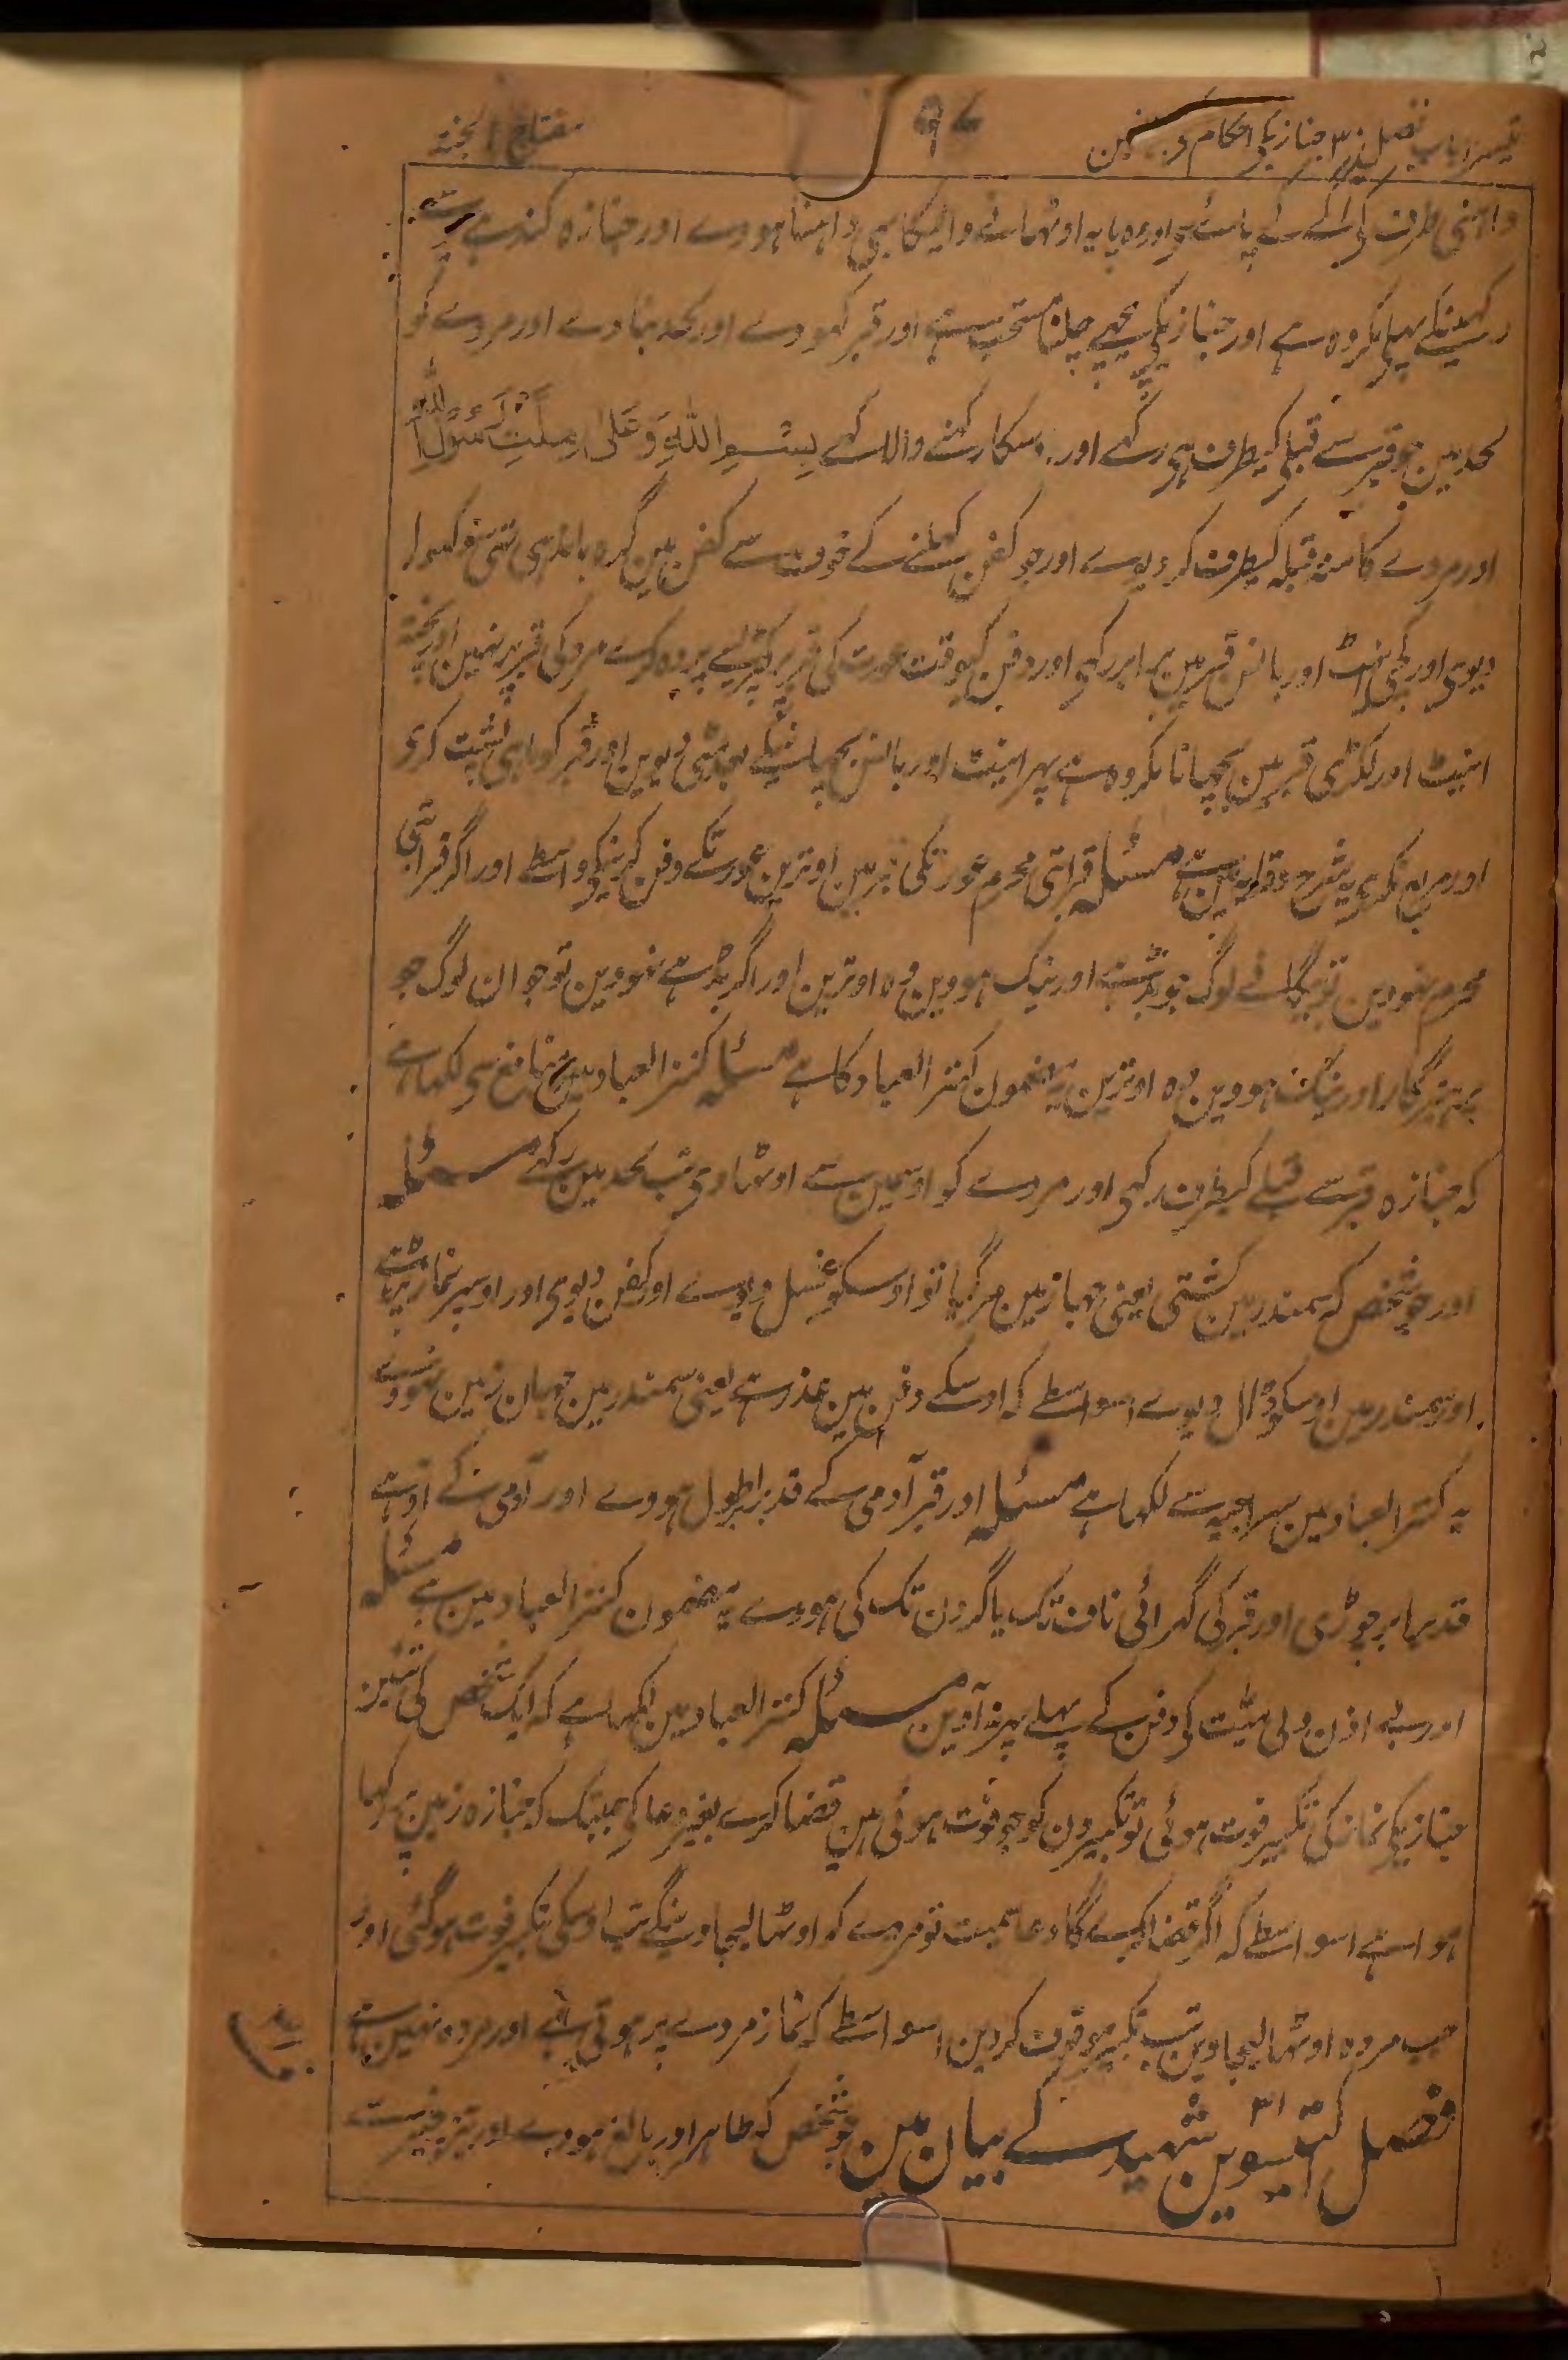 تیسرا باب فصل ۳۰ جنازیکے احکام و
۹۷
مفتاح الجنۃ
داہنی طرف کی اگلے پائے اور وہ پایہ اوٹھانے والیکا بھی داہنا ہووے اور جنازہ کندہے سے
رکہنیکے پہلے مکروہ ہے اور جنازیکے پیچھے چلنا مستحب ہے اور قبر کھودے اور لحد بنادے اور مردے کو
لحد میں جو قبر سے قبلے کیطرف ہی رکہے اور اوسکا رکہنے والا کہے بِسْمِ اللّٰهِ وَعَلٰى مِلَّتِ رَسُوْلِ اللّٰهِ
اور مردے کا منہ قبلہ کیطرف کردیوے اور جو کفن کہلنے کے خوف سے کفن میں گرہ باندہی تہی سو کہول
دیوی اور کچی اینٹ اور بانس قبر میں برابر رکہی اور دفن کیوقت عورت کی قبر پر کپڑیسے پردہ کرے مرد کی قبر پر نہیں اور پختہ
اینٹ اور لکڑی قبر میں بچھانا مکروہ ہے پہر اینٹ اور بانس بچھانیکے بعد مٹی دیویں اور قبر کو ماہی پشت کرے
اور مربع نکرے یہ شرح وقایہ میں ہے مسئلہ قرابتی محرم عورتکی قبر میں اوترین عورتکے دفن کرنیکے واسطے اور اگر قرابتی
محرم نہودین تو بیگانے لوگ جو بڈہے اور نیک ہووین وہ اوترین اور اگر بڈہے نہووین تو جوان لوگ جو
پرہیزگار اور نیک ہووین وہ اوترین یہ مضمون کنز العباد کا ہے مسئلہ کنز العباد میں منافع سی لکھا ہے
کہ جنازہ قبر سے قبلے کیطرف رکہی اور مردے کو اودہر سے اوٹھاوی تب لحد میں رکہے مسئلہ
اور جو شخص کہ سمندر میں کشتی یعنی جہاز میں مر گیا تو اوسکو غسل دیوے اور کفن دیوی اور اوسپر نماز پڑہے
اور سمندر میں اوسکو ڈال دیوے اسواسطے کہ اوسکے دفن میں عذر ہے یعنی سمندر میں جہان زمین نہووے
یہ کنز العباد میں سراجیہ سے لکھا ہے مسئلہ اور قبر آدمی کے قد برابر طول ہووے اور آدمی کے آدہے
قد برابر چوڑی اور قبر کی گہرائی ناف تک یا گردن تک کی ہووے یہ مضمون کنز العباد میں ہے مسئلہ
اور بے اذن ولی میت کی دفن کے پہلے پہر نہ آوین مسئلہ کنز العباد میں لکہا ہے کہ ایک شخص کی تئین
جنازیکی نماز کی تکبیر فوت ہوئی تو تکبیرون کو جو فوت ہوئی ہین قضا کرے بغیر دعا کی جبتک کہ جنازہ زمین پر رکہا
ہوا ہے اسواسطے کہ اگر قضا کرے گا دعا سمیت تو مردے کو اوٹھا لیجاوینگے تب اوسکی تکبیر فوت ہوگئی اور
جب مردہ اوٹھا لیجاوین تب تکبیر موقوف کردین اسواسطے کہ نماز مردے پر ہوتی ہے اور مردہ نہین ہے
فصل اکتیسوین ۳۱ شہید کے بیان مین جو شخص کہ طاہر اور بالغ ہووے اور